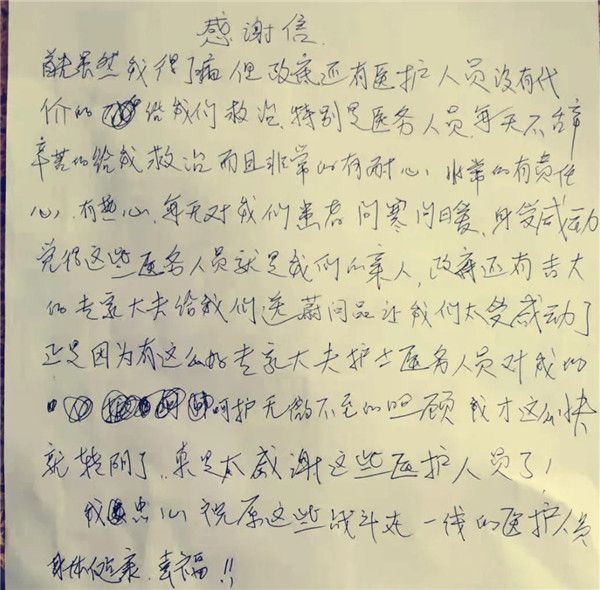 感谢信.
首先虽然我得了病但政府还有医护人员没有代
价的给我们救治.特别是医务人员.每天不辞
辛苦的给我救治而且非常的有耐心.非常的有责任
心.有热心.每天对我们患者问寒问暖.身受感动
觉得这些医务人员就是我们的亲人.政府还有吉大
的专家大夫给我们送慰问品让我们太受感动了
正是因为有这么好专家大夫护士医务人员对我的
呵护无微不至的照顾我才这么快
就转阴了.真是太感谢这些医护人员了!
我忠心祝愿这些战斗在一线的医护人员
身体健康.幸福!!